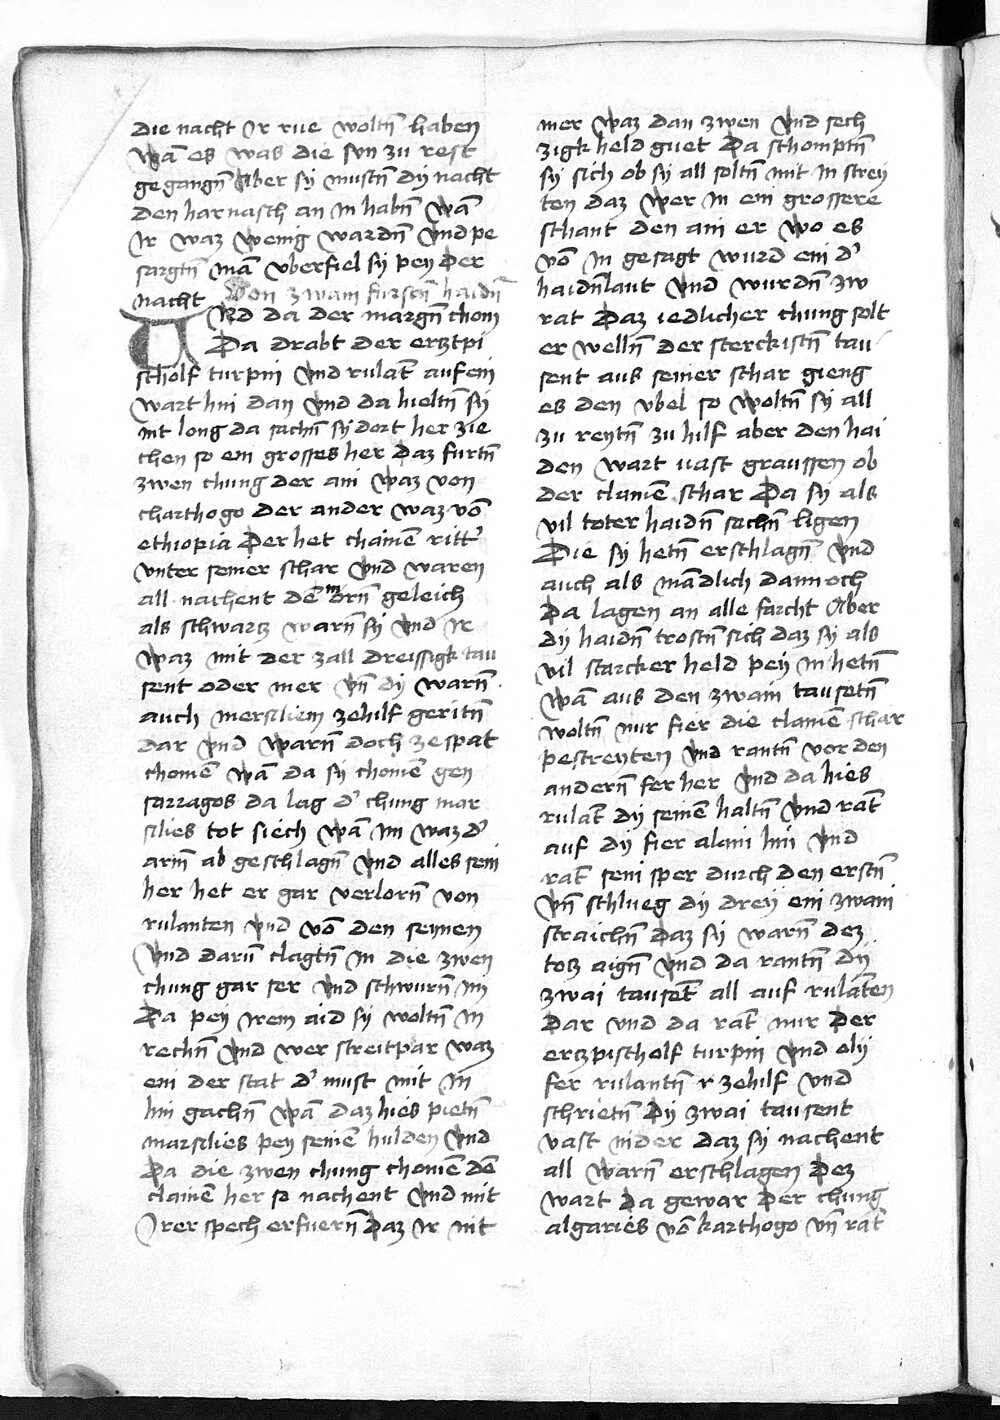 die nacht Ir rue woltn̄ haben
wā es was die sun zu rest
gegangn̄ Aber sy mustn̄ dy nacht
den harnasch an in habn̄ wā
Ir waz wenig wardn̄ vnd pe
sargtn̄ mā vberfiel sy pey der
nacht Von zwain furstn̄ haidn̄
Vnd da der margn̄ chom
Da drabt der ertzpi
scholf turpin vnd rulāt auf ein
wart hin dan vnd da hieltn̄ sy
nit long da sachn̄ sy dort her zie
chen so ein grosses her daz furtn̄
zwen chung der ain waz von
charthogo der ander waz vō
ethiopia Der het chainē ritt'
vnter seiner schar vnd waren
all nachent dē mörn̄ geleich
als schwartz warn̄ sy vnd ir
waz mit der zall dreissigk tau
sent oder mer vn̄ dy warn̄
auch mersiliem zehilf geritn̄
dar vnd warn̄ doch ze spat
chomē wā da sy chomē gen
sarragos da lag d' chung mar
silies tot siech wā im waz d'
arm̄ ab geschlagn̄ vnd alles sein
her het er gar verlorn̄ von
rulanten vnd vō den seinen
vnd darūn clagtn̄ in die zwen
chung gar ser vnd schwurn̄ im
Da pey irem aid sy woltn̄ in
rechn̄ vnd wer streitpar waz
ein der stat d' must mit in
hin gachn̄ wā daz hies pietn̄
marsilies pey seinē hulden vnd
Da die zwen chung chomē dē
clainē her so nachent vnd mit
Irer spech erfuern̄ Daz ir nit
mer waz dan zwen vnd sech
zigk held guet Da schomptn̄
sy sich ob sy all soltn̄ mit in strey
ten daz wer in ein grossere
schant den ain er wo es
vō in gesagt wurd ein d'
haidn̄laut vnd wurdn̄ zw
rat Daz iedlicher chung solt
er welln̄ der sterckistn̄ tau
sent aus seiner schar gieng
es den vbel so woltn̄ sy all
zu reytn̄ zu hilf aber den hai
den wart vast graussen ob
der clainē schar Da sy als
vil toter haidn̄ sachn̄ ligen
Die sy hetn̄ erschlagn̄ vnd
auch als mādlich dannoch
Da lagen an alle farcht Aber
dy haidn̄ trostn̄ sich daz sy als
vil starcker held pey in hetn̄
wā aus den zwain tausetn̄
woltn̄ nur fier die clainē schar
pestreyten vnd rantn̄ vor den
andern̄ fer her vnd da hies
rulāt dy seinē haltn̄ vnd rāt
auf dy fier alain hin vnd
rāt sein sper durch den erstn̄
vn̄ schlueg dy dreÿ ein zwain
straichn̄ Daz sy warn̄ dez
totz aign̄ vnd da rantn̄ dy
zwai tausēt all auf rulāten
Dar vnd da rāt nur der
ertzpischolf turpin vnd olÿ
fer rulantn̄ r zehilf vnd
schrietn̄ Dy zwai tausent
vast nider daz sy nachent
all warn̄ erschlagen Dez
wart Da gewar Der chung
algaries vō karthogo vn̄ rāt